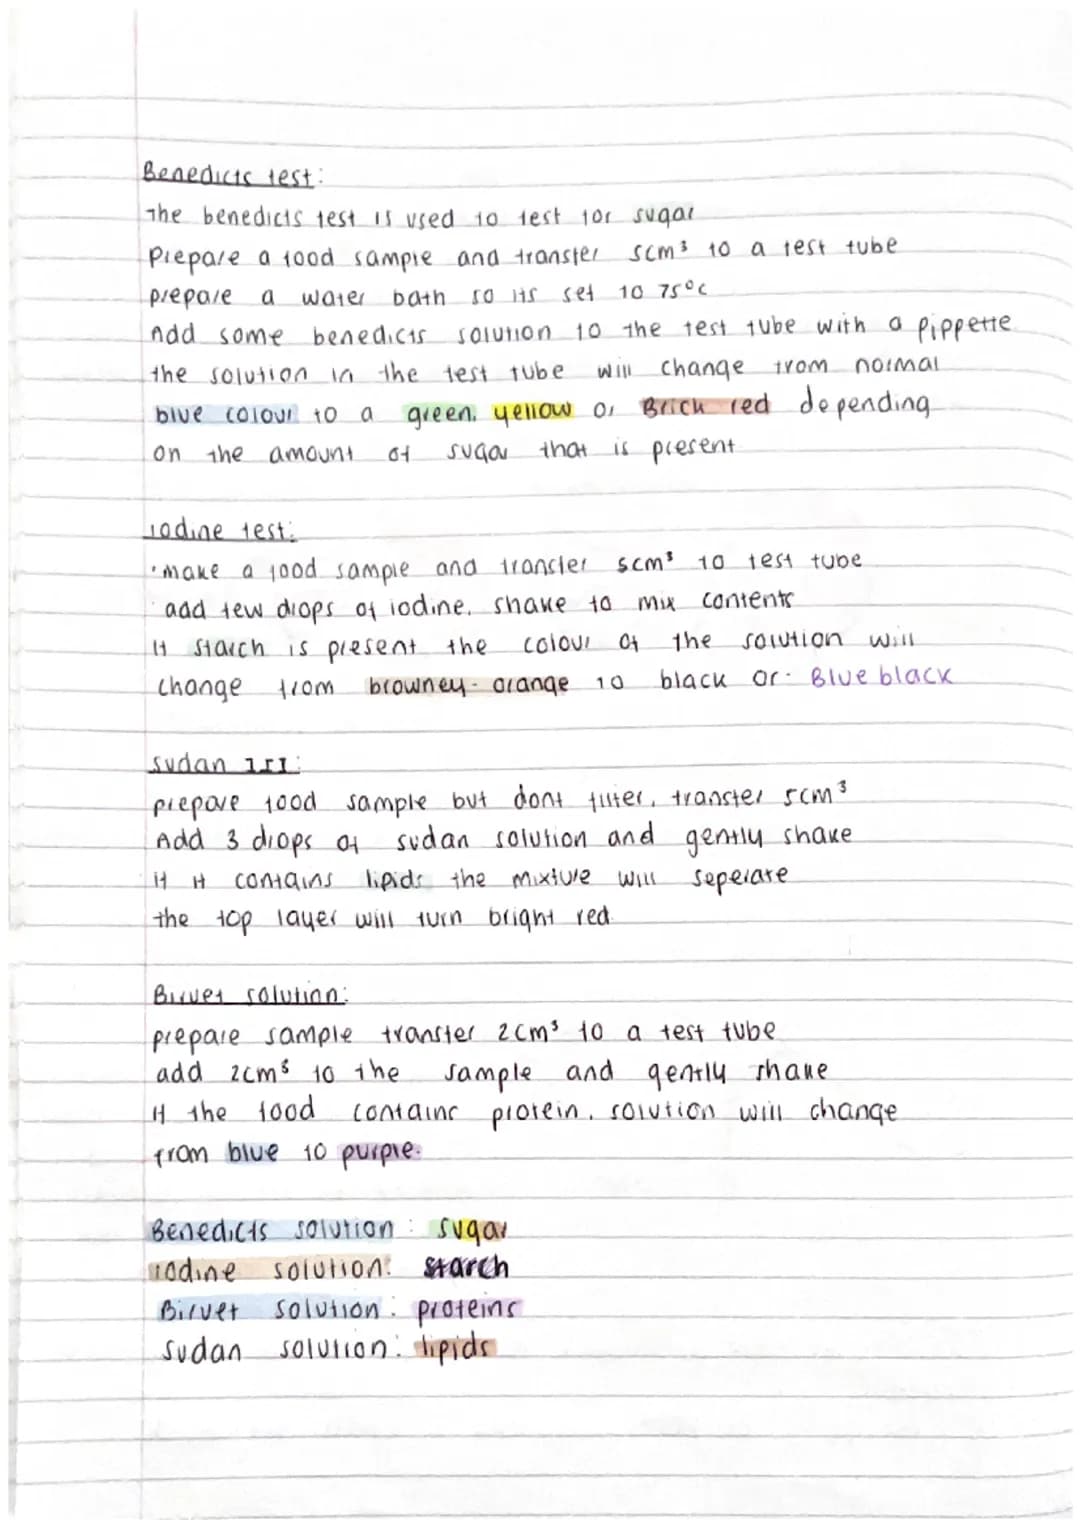 Benedicts test:
The benedicts test is used to test for sugar
Prepare a food sample and transfer 5cm³ to a test tube
prepare a water bath so its set to 75°C
Add some benedicts solution to the test tube with a pippette
the solution in the test tube will change from normal
blue colour to a green, yellow or Brick red depending
on the amount of sugar that is present
iodine test:
·make a food sample and transfer 5cm³ to test tube
add few drops of iodine, shake to mix contents
If starch is present the colour of the solution will
change from browney-orange to black or Blue black
Sudan III:
prepare food sample but dont filter, transfer 5cm³
Add 3 drops of sudan solution and gently shake
if it contains lipids the mixture will seperate
the top layer will turn bright red
Biruet solution:
prepare sample transfer 2cm³ to a test tube
add 2cm³ to the sample and gently shake
If the food contains protein, solution will change
from blue to purple.
Benedicts solution: sugar
iodine solution: starch
Biruet solution: proteins
Sudan solution: lipids